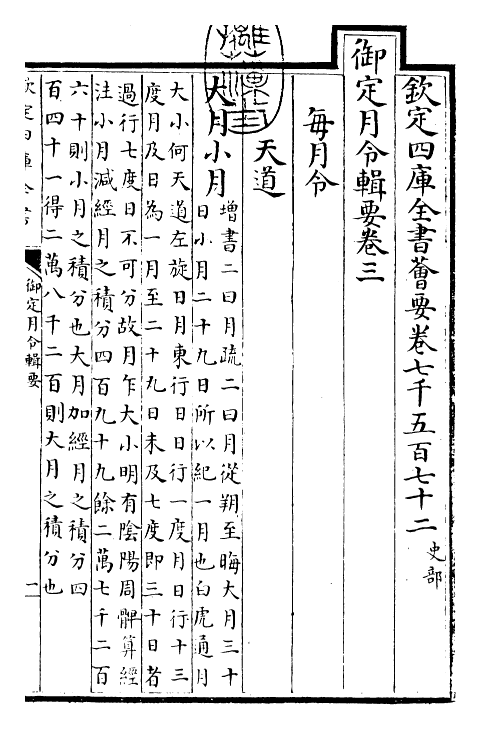 欽定四庫全書薈要卷七千五百七十二 史部
御定月令輯要卷三
每月令
天道
大月小月
增書二曰月疏二曰月從朔至晦大月三十
日小月二十九日所以紀一月也白虎通月
大小何天道左旋日月東行日日行一度月日行十三
度月及日為一月至二十九日未及七度即三十日者
過行七度日不可分故月乍大小明有陰陽周髀算經
注小月減經月之積分四百九十九餘二萬七千二百
六十則小月之積分也大月加經月之積分四
百四十一得二萬八千二百則大月之積分也
欽定四庫全書
御定月令輯要
一